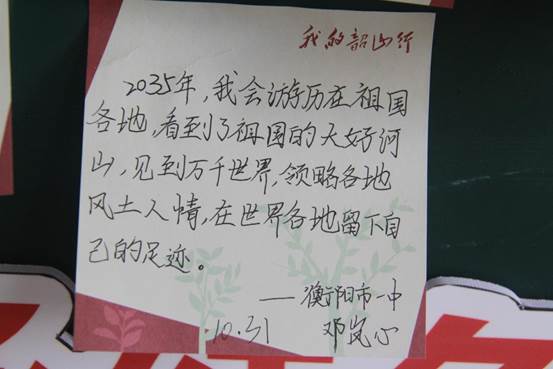 我的韶山行
2035年,我会游历在祖国
各地,看到了祖国的大好河
山,见到万千世界,领略各地
风土人情,在世界各地留下自
己的足迹。
——衡阳市一中
10.31 邓岚心